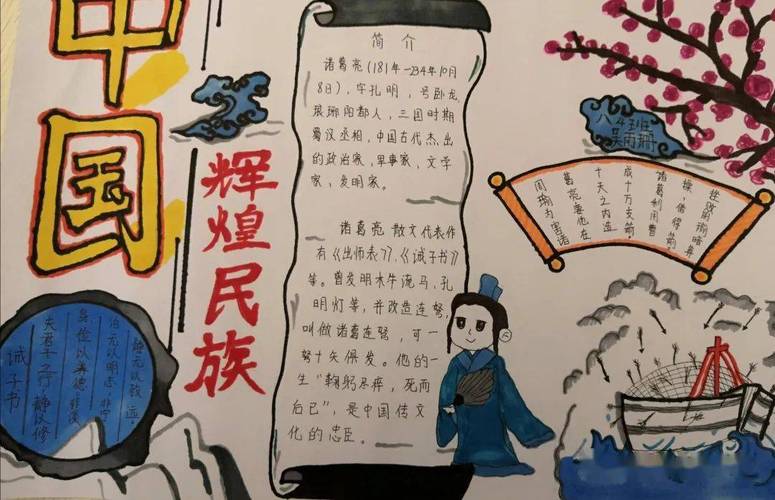 中国
辉煌民族
简介
诸葛亮(181年—234年10月
8日),字孔明,号卧龙,
琅琊阳都人,三国时期
蜀汉丞相,中国古代杰出
的政治家,军事家,文学
家,发明家。
诸葛亮散文代表作
有《出师表》,《诫子书》
等。曾发明木牛流马,孔
明灯等,并改造连弩,
叫做诸葛连弩,可一
弩十矢俱发。他的一
生“鞠躬尽瘁,死而
后已”,是中国传文
化的忠臣。
八4班
吴雨珊
周瑜为害诸
葛亮要他在
十天之内造
成十万支箭,
诸葛利用曹
操,借得箭
挫败周瑜暗算
诫子书
夫君子之行,静以修
身,俭以养德,非淡
泊无以明志,非宁
静无以致远。